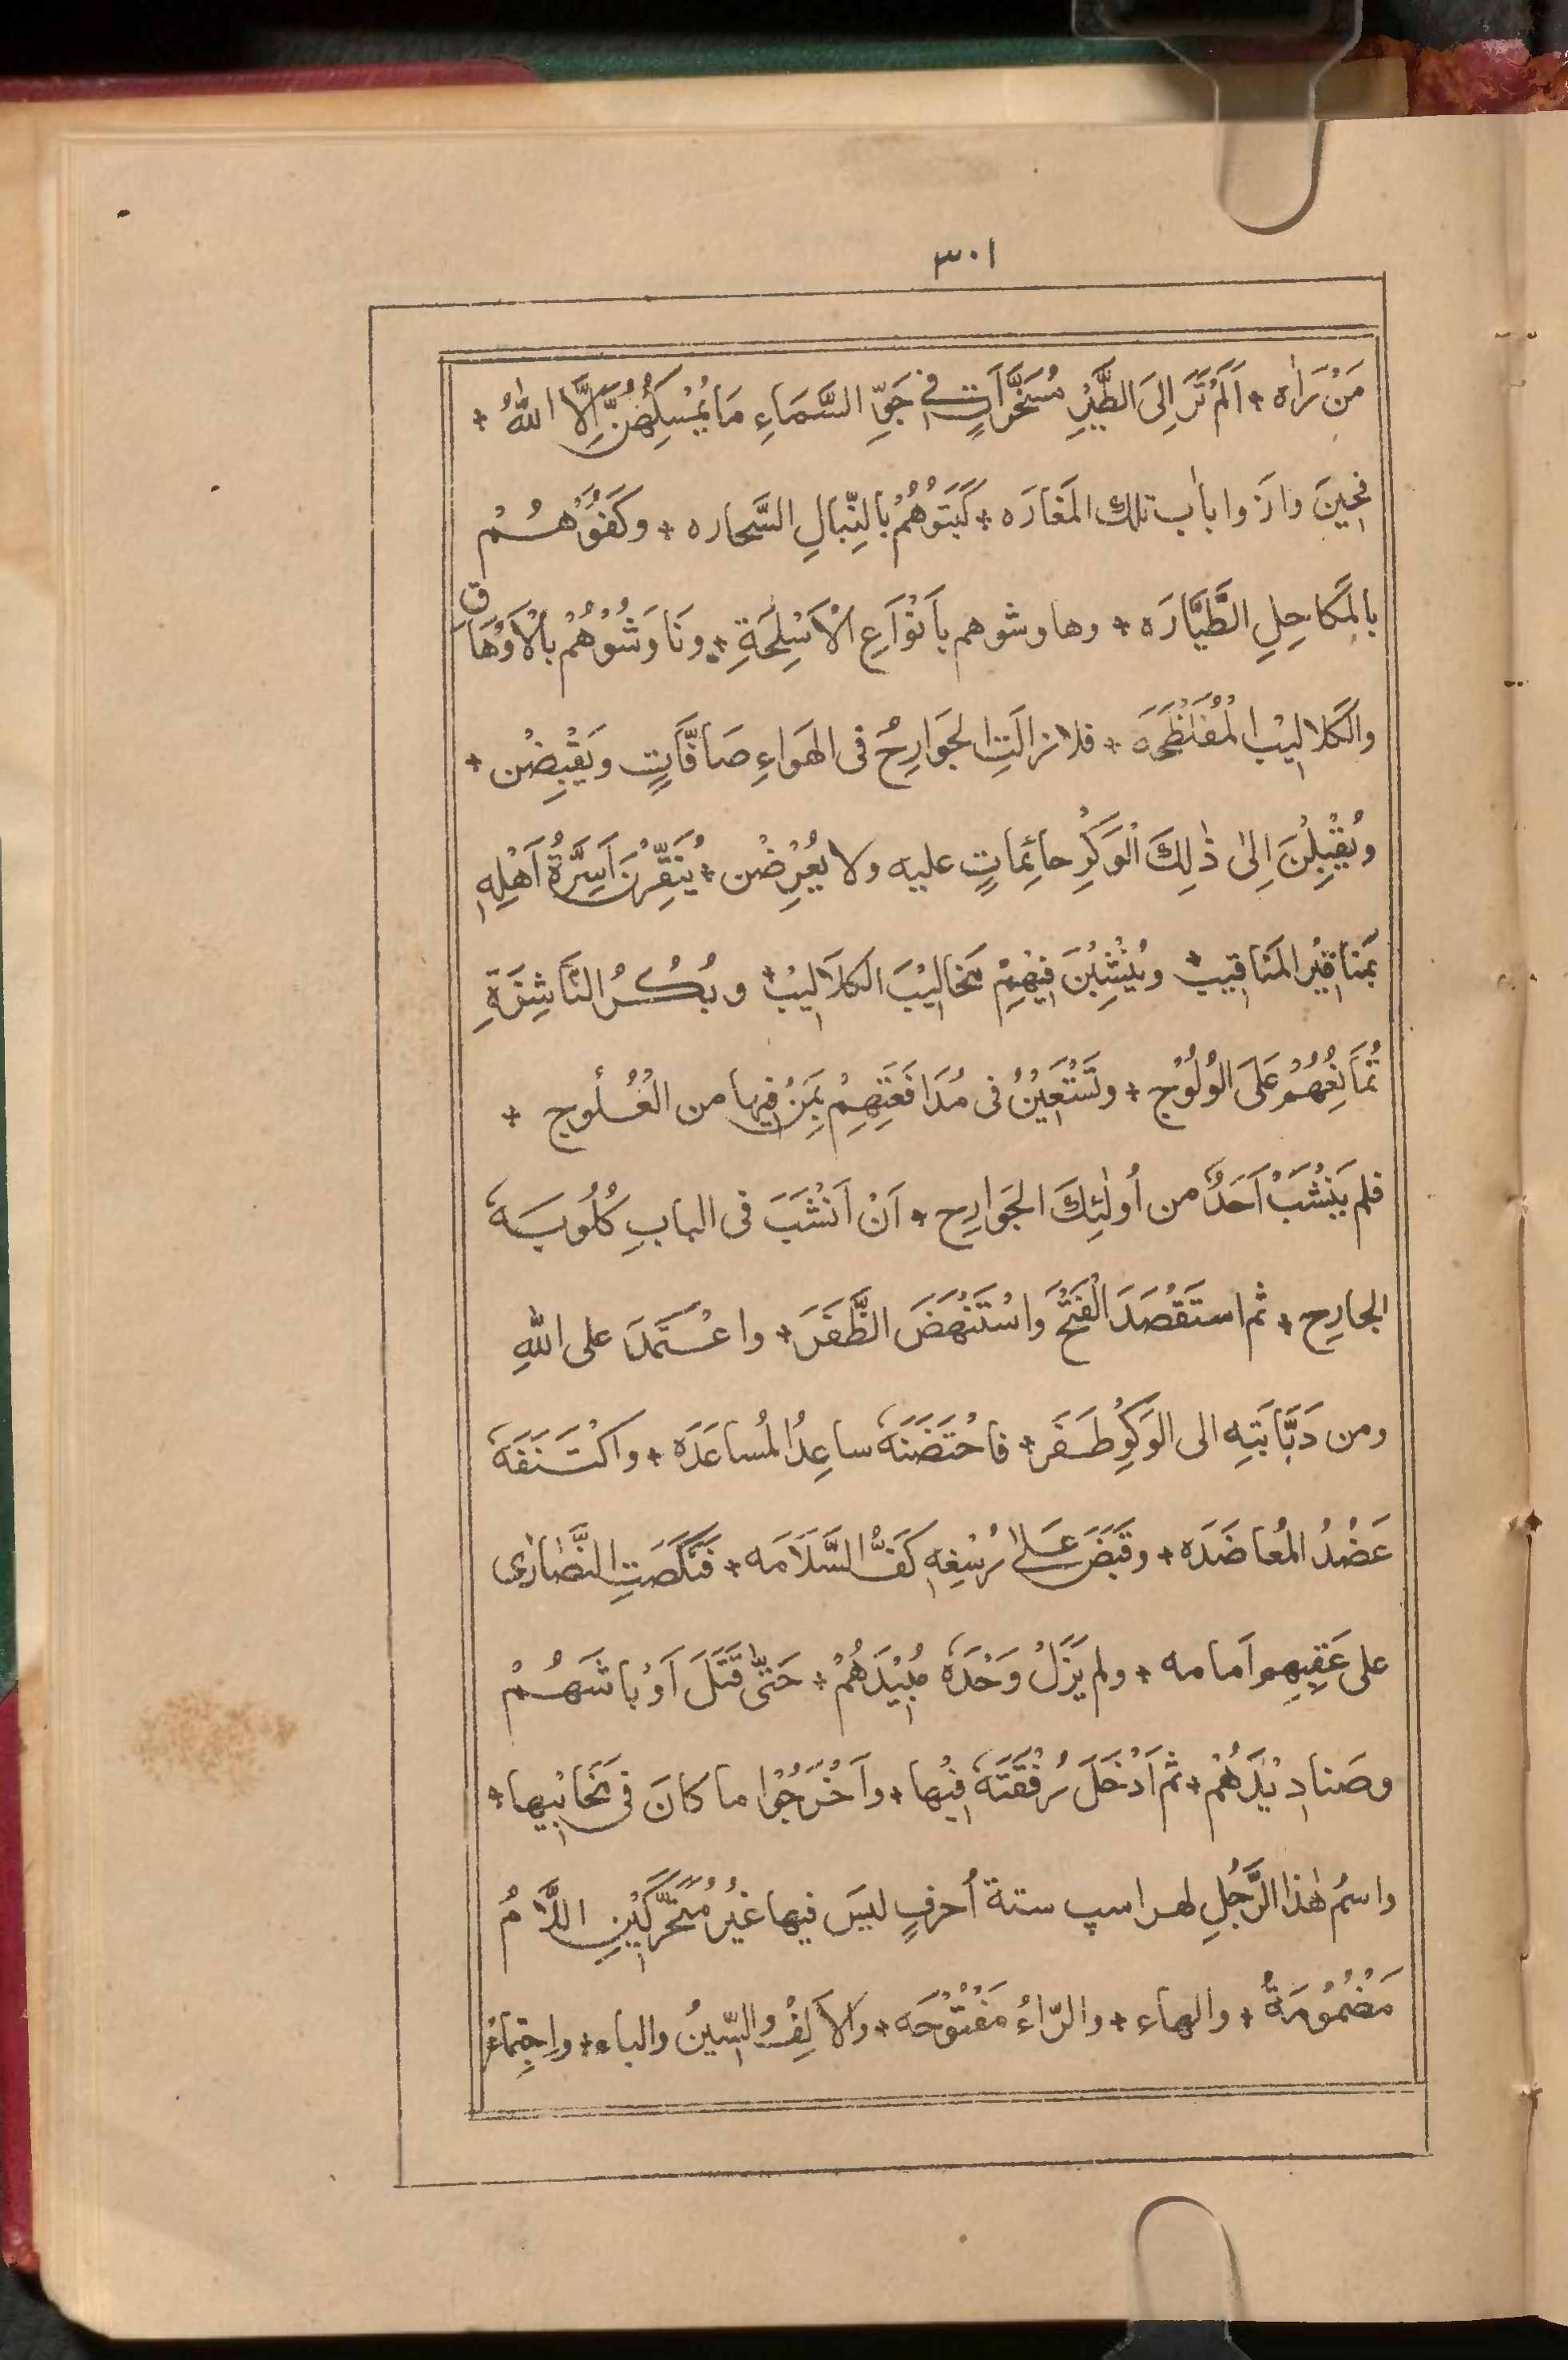 ٣٠١
مَنْ يَرَاه * اَلَمْ تَرَ اِلَى الطَّيْرِ مُسَخَّرَاتٍ فِي جَوِّ السَّمَاءِ مَا يُمْسِكُهُنَّ اِلَّا اللهُ *
فحِينَ وازَوا بابَ تلك المَغارَه * كَبَتُوْهُمْ بالنِّبالِ السَّحاره * وكَفَوْهُمْ
بالمَكاحِلِ الطَّيَّارَه * وهاوشوهم بأَنْوَاعِ الْاَسْلِحَةِ * ونَاوَشُوْهُمْ بالْاَوْهَاقِ
والكَلالِيْبِ الْمُفَلْطَحَه * فلا زالَتِ الجَوَارِحُ فى الهَواءِ صَافَّاتٍ ويَقْبِضْن *
ويُقْبِلْنَ اِلىٰ ذٰلِكَ الْوَكْرِ حائِماتٍ عليه ولا يُعْرِضْن * يُنَقِّرْنَ اَسِرَّةَ اَهْلِهٖ
بمَناقِيْرِ المَناقِيب * ويُنْشِبْنَ فِيْهِمْ مَخالِيْبَ الكلَالِيْب * وبُكْرُ النَّاشِزَةِ
تُمَانِعُهُمْ عَلَى الوُلُوْج * وتَسْتَعِيْنُ فى مُدَافَعَتِهِمْ بِمَنْ فِيها من العُلُوج *
فلم يَنْشَبْ اَحَدٌ من أُولٰئِكَ الجَوارِح * اَنْ اَنْشَبَ فى البابِ كُلُوبَهٗ
الجارِح * ثم استَقْصَدَ الْفَتْحَ واسْتَنْهَضَ الظَّفَرَ * واعْتَمَدَ على اللهِ
ومن دَبَّابَتِهِ الى الوَكْرِ طَفَر * فاحْتَضَنَهٗ ساعِدُ المُساعَدَه * واكْتَنَفَهٗ
عَضُدُ المُعاضَدَه * وقَبَضَ عَلىٰ رُسْغِهٖ كَفُّ السَّلَامَه * فَنَكَصَتِ النَّصارٰى
على عَقِبِهِم اَمامه * ولم يَزَلْ وَحْدَهٗ مُبِيْدَهُمْ * حَتّٰى قَتَلَ اَوْباشَهُمْ
وصَنادِيْدَهُمْ * ثم اَدْخَلَ رُفْقَتَهٗ فِيْها * واَخْرَجُوْا ما كانَ فى مَخابِيها *
واسمُ هٰذا الرَّجُلِ لهراسپ ستة أحرفٍ ليسَ فيها غيرُ مُتَحَرِّكَيْنِ اللَّامُ
مَضْمُوْمَةٌ * والهاء * والرّاءُ مَفْتُوْحَه * والاَلِفُ والسِّينُ والباء * واجتِماعُ